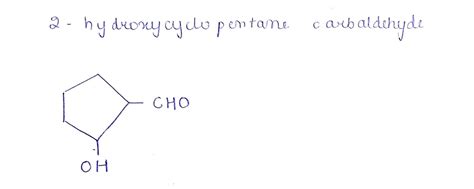 2 - hydroxycyclo pentane carbaldehyde
CHO
OH